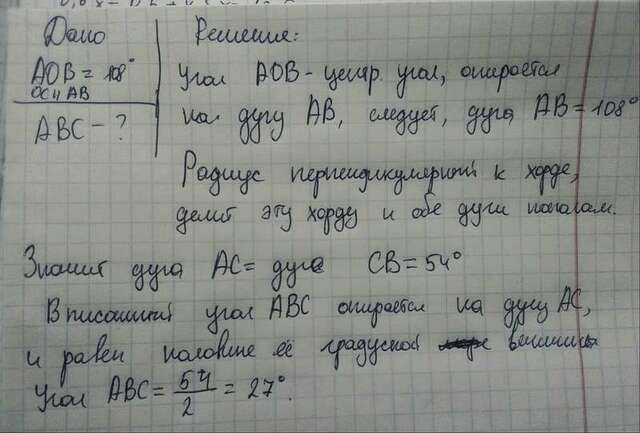 Дано
АОВ = 108°
ОС ⊥ АВ
АВС - ?
Решение:
Угол АОВ - центр. угол, опирается
на дугу АВ, следует, дуга АВ = 108°
Радиус перпендикулярный к хорде,
делит эту хорду и обе дуги пополам.
Значит дуга АС = дуге СВ = 54°
Вписанный угол АВС опирается на дугу АС,
и равен половине её градусной величины
Угол АВС = 54/2 = 27°.